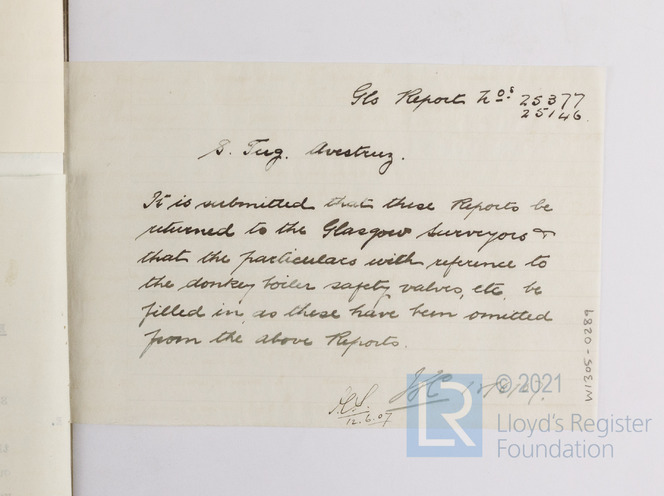 Gls Report Nos. 25377
25146.
S. Tug. Avestruz.
It is submitted that these Reports be
returned to the Glasgow Surveyors &
that the particulars with reference to
the donkey boiler safety valves, etc. be
filled in, as these have been omitted
from the above Reports.
12.6.07
W1305-0289
© 2021
LR
Lloyd's Register
Foundation